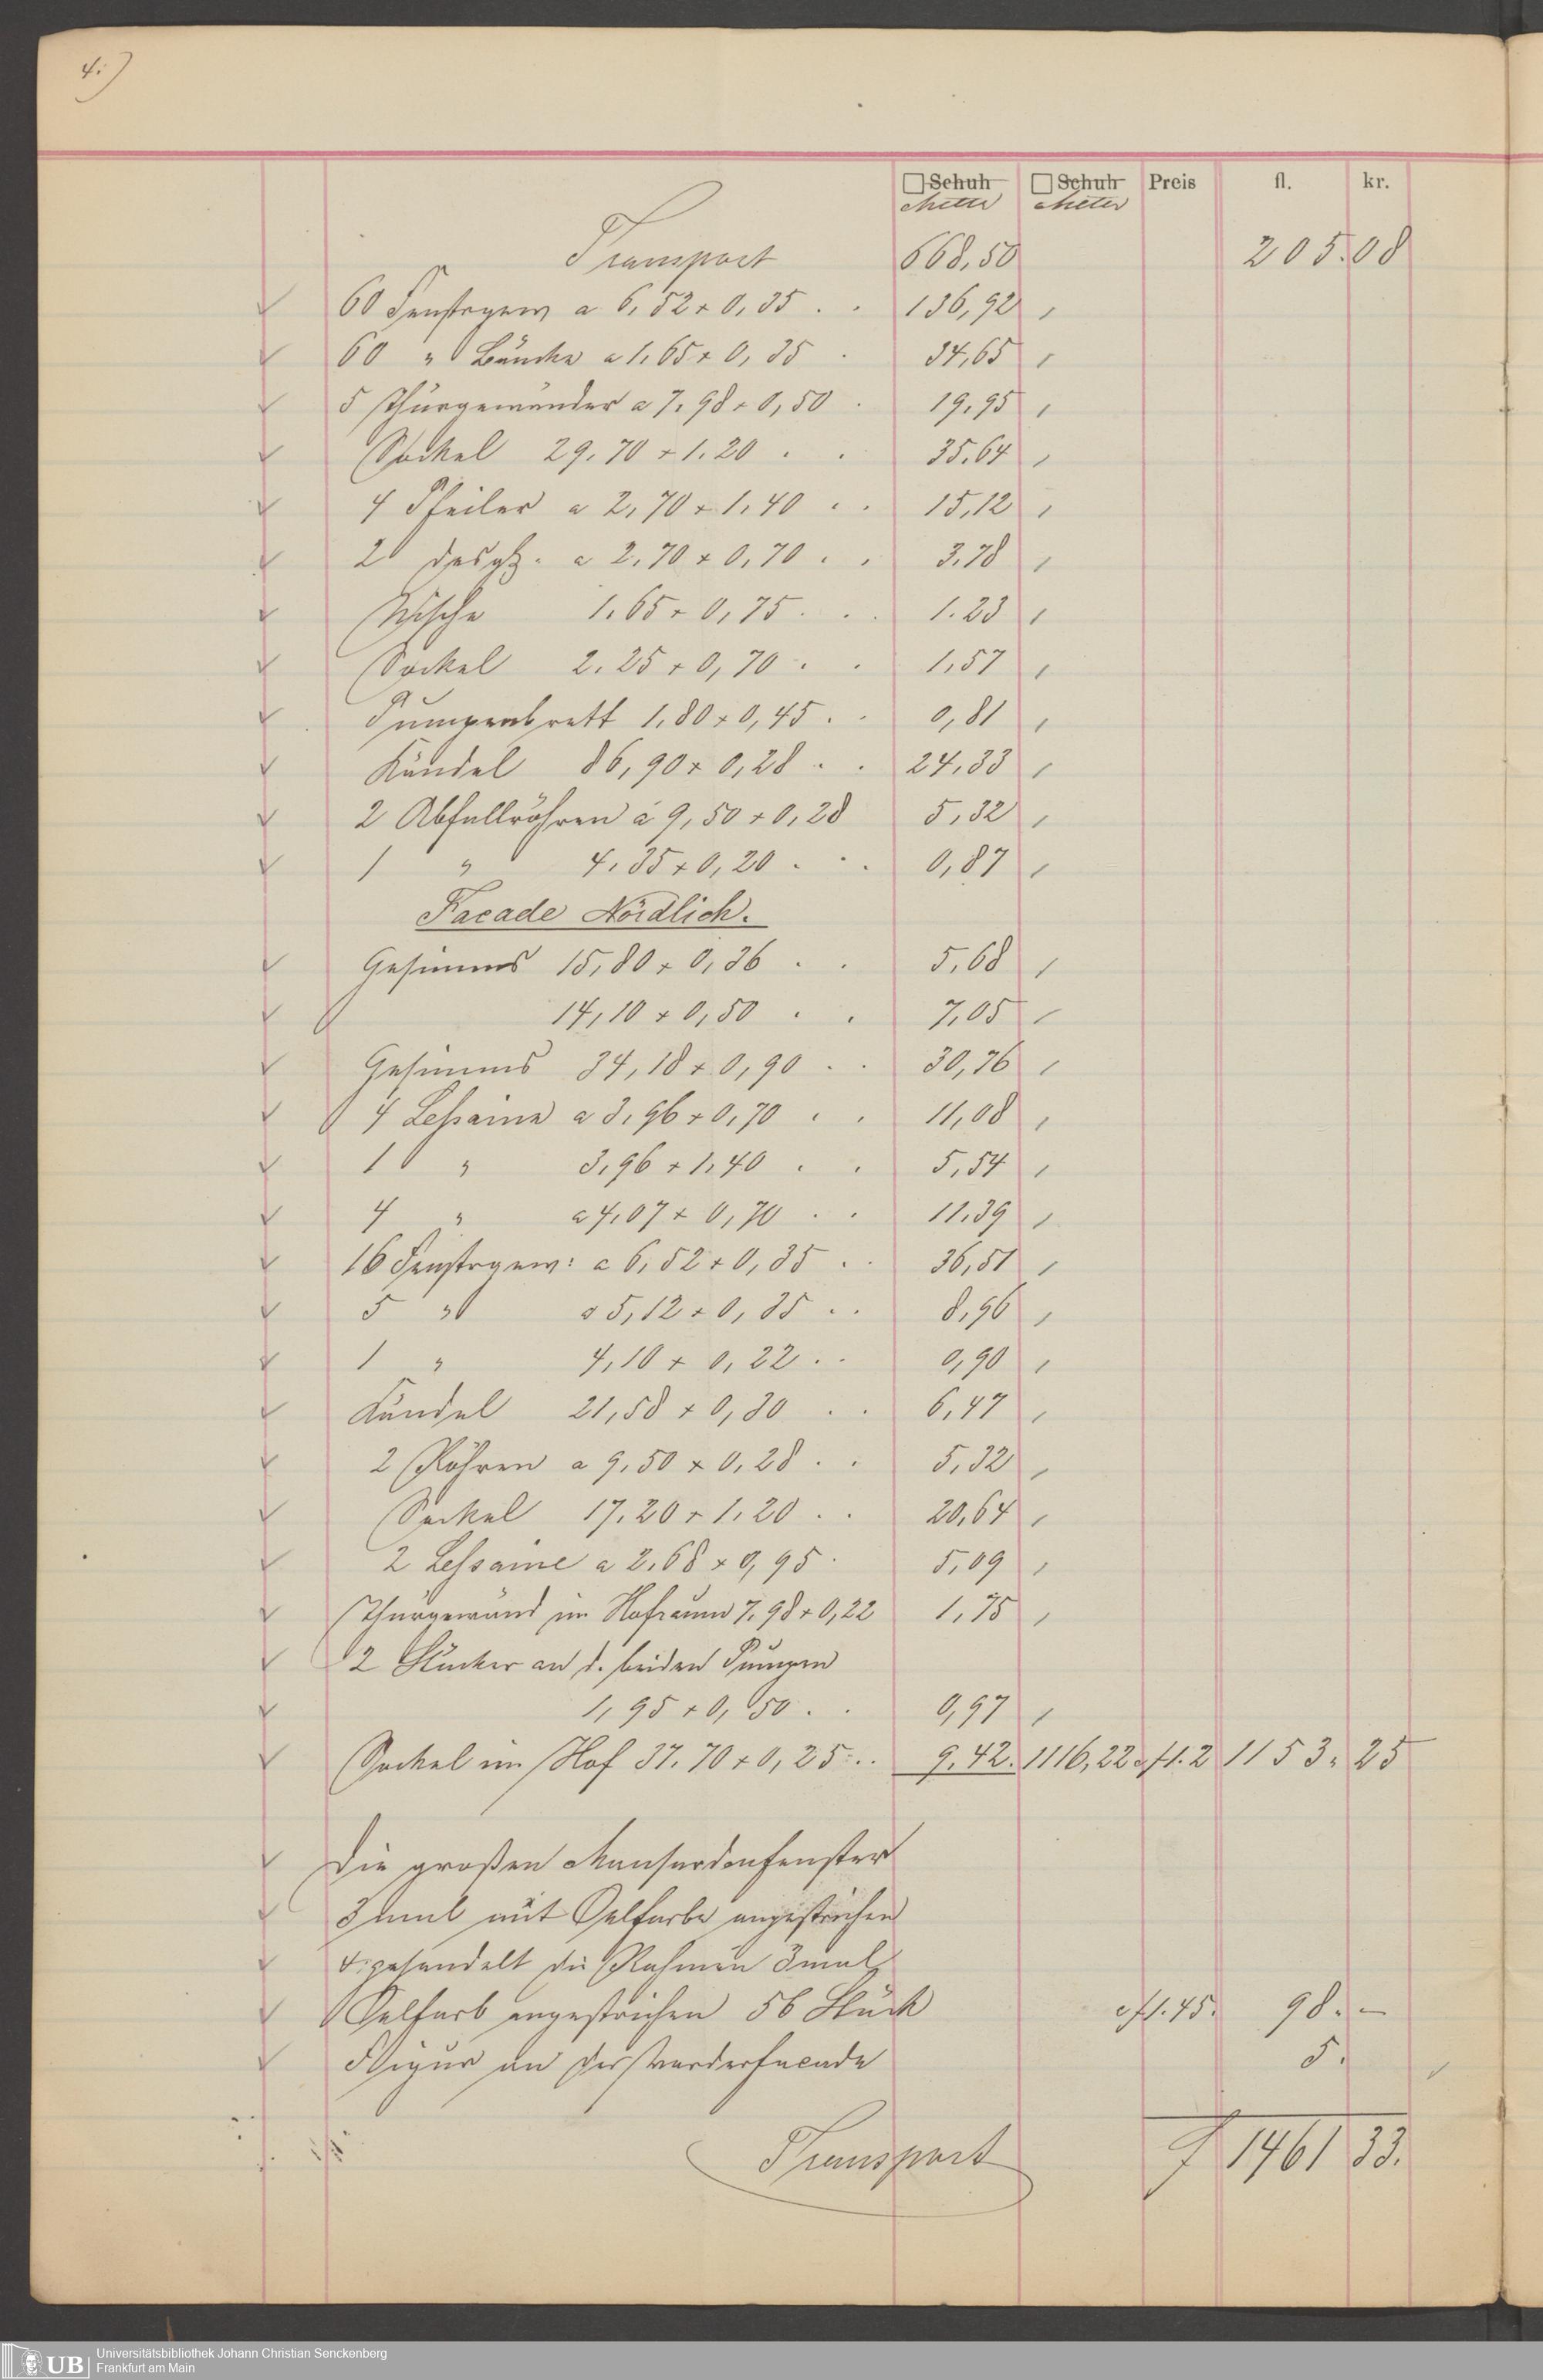 4.)
□ Schuh □ Schuh Preis fl. kr.
Meter Meter
Transport 668,50 205.08
60 Fenstrgew a 6,52 + 0,35 . . 136,92
60 " Bänke a 1,65 + 0,35 . 34,65
5 Thürgewänder a 7,98 + 0,50 . 19,95
Sockel 29,70 + 1.20 . . 35,64
4 Pfeiler a 2,70 + 1,40 . . 15,12
2 desgl. a 2,70 + 0,70 . . 3.78
Nische 1,65 + 0,75 . . 1.23
Sockel 2.25 + 0,70 . . 1,57
Pumpenbrett 1,80 + 0,45 . . 0,81
Kändel 86,90 + 0,28 . . 24,33
2 Abfallröhren á 9,50 + 0,28 5,32
1 " 4,35 + 0,20 . . . 0,87
Facade Nördlich.
Gesimms 15,80 + 0,36 . . 5,68
14,10 + 0,50 . . 7,05
Gesimms 34,18 + 0,90 . . 30,76
4 Lessaine a 3,96 + 0,70 . . 11,08
1 " 3,96 + 1,40 . . 5,54
4 " a 4,07 + 0,70 . . 11,39
16 Fenstrgew: a 6,52 + 0,35 . . 36,51
5 " a 5,12 + 0,35 . . 8,96
1 " 4,10 + 0,22 . . 0,90
Kändel 21,58 + 0,30 . . 6,47
2 Röhren a 9,50 + 0,28 . . 5,32
Sockel 17,20 + 1,20 . . 20,64
2 Lessaine a 2,68 + 0,95 . 5,09
Thürgewänd im Hofraum 7,98 + 0,22 1,75
2 Stücker an d. beiden Pumpen
1,95 + 0,50 . . 0,97
Sockel im Hof 37.70 + 0,25 . . 9.42. 1116,22 a f 1.2 1153. 25
Die großen Mansardenfenster
3 mal mit Oelfarbe angestrichen
u. gesandelt die Rahmen 3mal
Oelfarb angestrichen 56 Stück a f 1.45. 98. –
Figur an der Vorderfacade 5.
Transport f 1461 33.
Universitätsbibliothek Johann Christian Senckenberg
Frankfurt am Main
UB